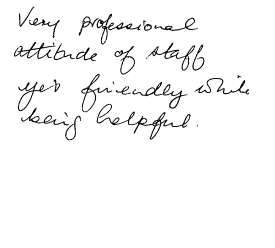 Very professional
attitude of staff
yet friendly while
being helpful.